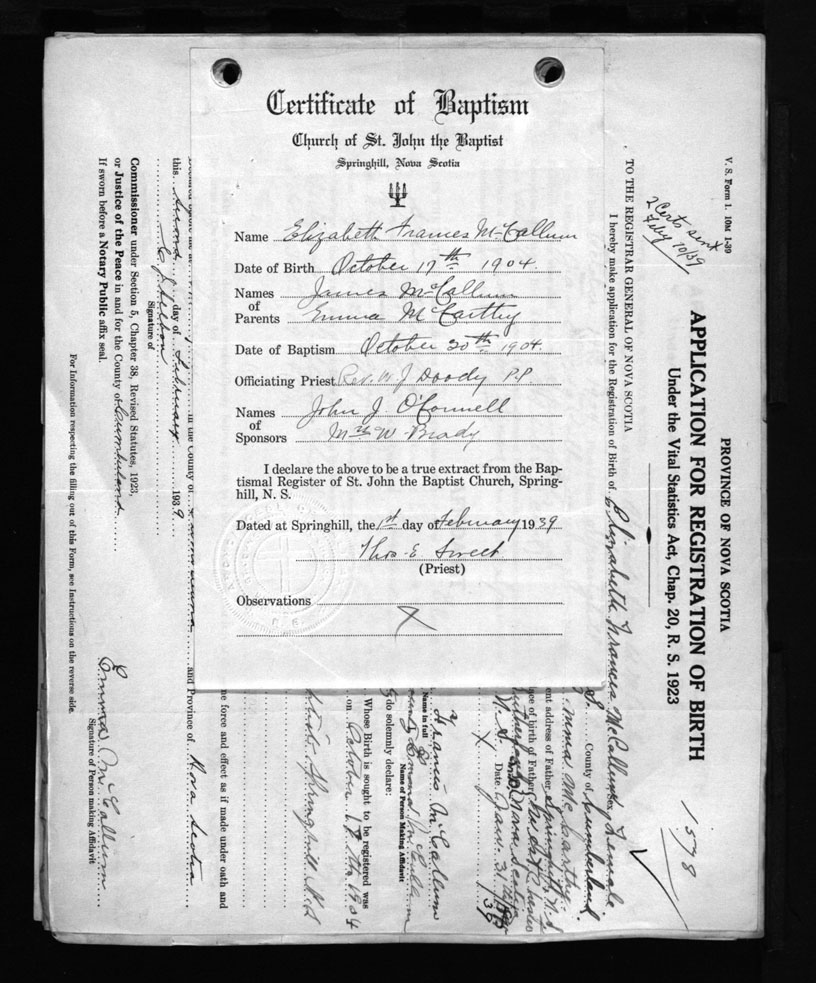 Certificate of Baptism
Church of St. John the Baptist
Springhill, Nova Scotia
Name Elizabeth Frances McCallum
Date of Birth October 17th 1904.
Names James McCallum
of
Parents Emma McCarthy
Date of Baptism October 30th 1904.
Officiating Priest Rev. W J Doody P.P.
Names John J. O'Connell
of
Sponsors Mrs W Brady
I declare the above to be a true extract from the Bap-
tismal Register of St. John the Baptist Church, Spring-
hill, N. S.
Dated at Springhill, the 1st day of February 1939
Thos. E Sweet
(Priest)
Observations
X
V. S. Form 1. 10M 1-39
2 Certs sent
Feby 10/39
PROVINCE OF NOVA SCOTIA
APPLICATION FOR REGISTRATION OF BIRTH
Under the Vital Statistics Act, Chap. 20, R. S. 1923
1578
TO THE REGISTRAR GENERAL OF NOVA SCOTIA
I hereby make application for the Registration of Birth of Elizabeth Frances McCallum Sex Female
County of Cumberland
Emma McCarthy
ent address of Father Springhill N.S.
ce of birth of Father
N.S. Date Jan. 31
X
Frances McCallum
Name in full
Emma McCallum
Name of Person Making Affidavit
do solemnly declare:
Whose Birth is sought to be registered was
on October 17th 1904
Springhill N.S.
ne force and effect as if made under oath and
in the County of
and Province of Nova Scotia
this second day of February 1939
C. J.
Signature of
Commissioner under Section 5, Chapter 38, Revised Statutes, 1923,
or Justice of the Peace in and for the County of Cumberland
If sworn before a Notary Public affix seal.
Emma McCallum
Signature of Person making Affidavit
For Information respecting the filling out of this Form, see Instructions on the reverse side.